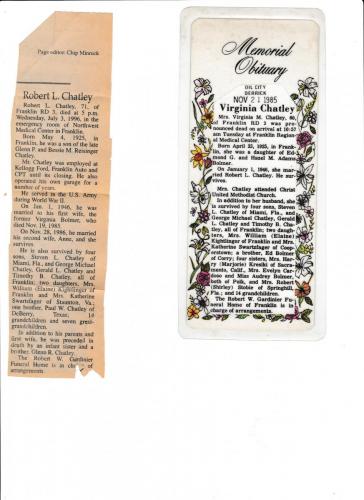 Page editor: Chip Minnock
Robert L. Chatley
Robert L. Chatley, 71, of
Franklin RD 3, died at 5 p.m.
Wednesday, July 3, 1996, in the
emergency room of Northwest
Medical Center in Franklin.
Born May 4, 1925, in
Franklin, he was a son of the late
Glenn P. and Bessie M. Reisinger
Chatley.
Mr. Chatley was employed at
Kellogg Ford, Franklin Auto and
CPT until its closing. He also
operated his own garage for a
number of years.
He served in the U.S. Army
during World War II.
On Jan. 1, 1946, he was
married to his first wife, the
former Virginia Bolmer, who
died Nov. 19, 1985.
On Nov. 28, 1986, he married
his second wife, Anne, and she
survives.
He is also survived by four
sons, Steven L. Chatley of
Miami, Fla., and George Michael
Chatley, Gerald L. Chatley and
Timothy B. Chatley, all of
Franklin; two daughters, Mrs.
William (Elaine) Kightlinger of
Franklin and Mrs. Katherine
Swartzfager of Staunton, Va.;
one brother, Paul W. Chatley of
DeBerry, Texas; 14
grandchildren and seven great-
grandchildren.
In addition to his parents and
first wife, he was preceded in
death by an infant sister and a
brother, Glenn R. Chatley.
The Robert W. Gardinier
Funeral Home is in charge of
arrangements.
Memorial
Obituary
OIL CITY
DERRICK
NOV 21 1985
Virginia Chatley
Mrs. Virginia M. Chatley, 60,
of Franklin RD 3 was pro-
nounced dead on arrival at 10:57
am Tuesday at Franklin Region-
al Medical Center.
Born April 23, 1925, in Frank-
lin, she was a daughter of Ed-
mond G. and Hazel M. Adams
Bolmer.
On January 1, 1946, she mar-
ried Robert L. Chatley. He sur-
vives.
Mrs. Chatley attended Christ
United Methodist Church.
In addition to her husband, she
is survived by four sons, Steven
L. Chatley of Miami, Fla., and
George Michael Chatley, Gerald
L. Chatley and Timothy B. Cha-
tley, all of Franklin; two daugh-
ters, Mrs. William (Elaine)
Kightlinger of Franklin and Mrs.
Katherine Swartzfager of Coop-
erstown; a brother, Ed Bolmer
of Corry; four sisters, Mrs. Har-
ry (Marjorie) Kreski of Sacra-
mento, Calif., Mrs. Evelyn Car-
doso and Miss Audrey Bolmer,
both of Polk, and Mrs. Robert
(Shirley) Stoble of Springhill,
Fla.; and 14 grandchildren.
The Robert W. Gardinier Fu-
neral Home of Franklin is in
charge of arrangements.